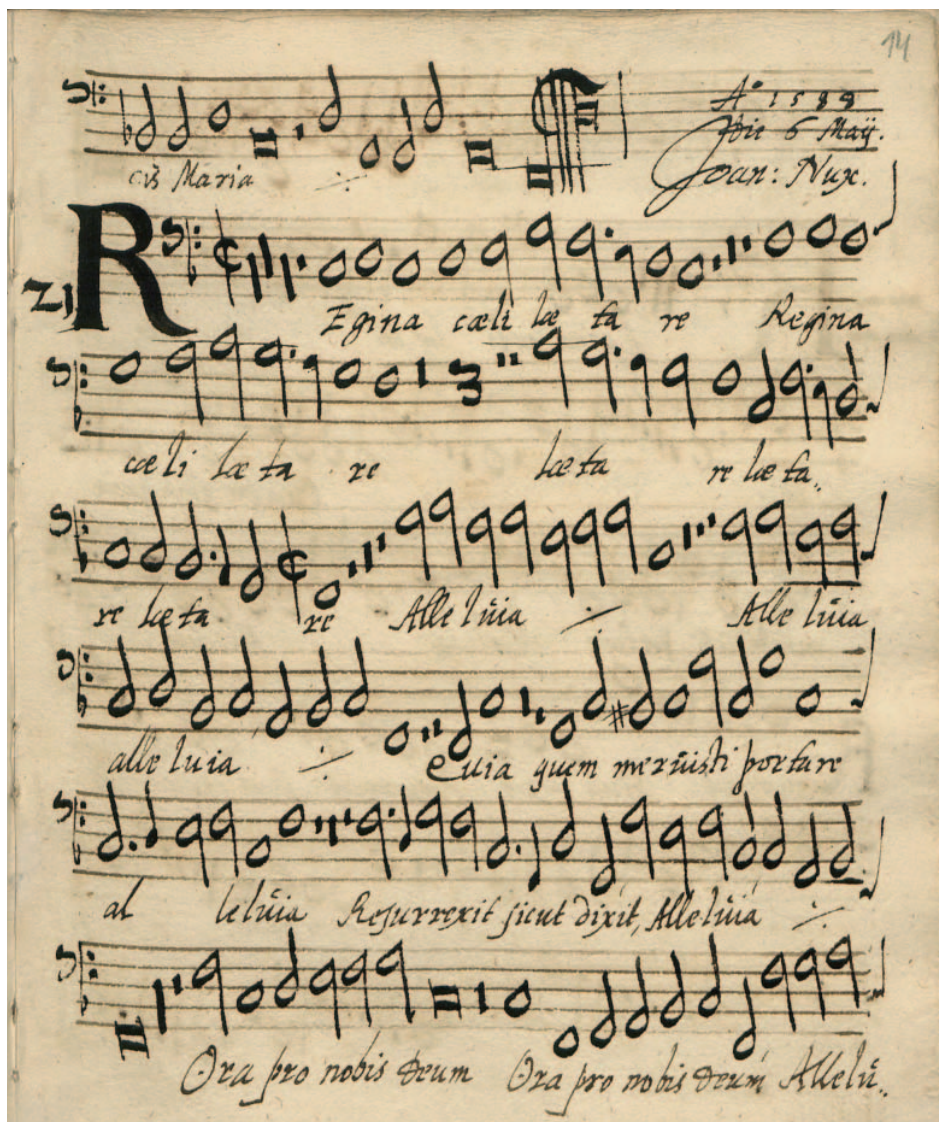 14
Aº 1588
Die 6 Maÿ.
Joan: Nux.
cis Maria
21
REgina cæli læ ta re Regina
cæ li læ ta re læ ta re læ ta„
re læ ta re Alle lůia Alle lůia
alle luia Euia quem merůisti portare
al lelůia Resurrexit sicut dixit, Allelůia
Ora pro nobis deum Ora pro nobis deum Allelů„